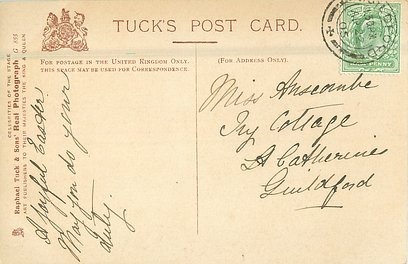 TUCK'S POST CARD.
FOR POSTAGE IN THE UNITED KINGDOM ONLY,
THIS SPACE MAY BE USED FOR CORRESPONDENCE.
(FOR ADDRESS ONLY).
CELEBRITIES OF THE STAGE
Raphael Tuck & Sons' "Real Photograph"
ART PUBLISHERS TO THEIR MAJESTIES THE KING & QUEEN
A Joyful Easter
May you do your
duty.
Miss Anscombe
Ivy Cottage
St Catherines
Guildford
PENNY